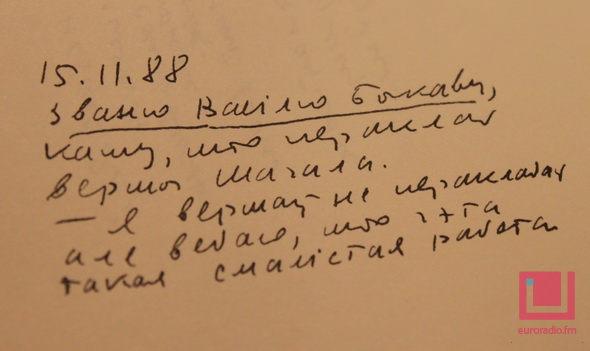 15.11.88
Званю Васілю Быкаву,
кажу, што пераклаў
вершы Шагала.
— Я вершаў не перакладаў
але ведаю, што гэта
такая смалістая работа
euroradio.fm